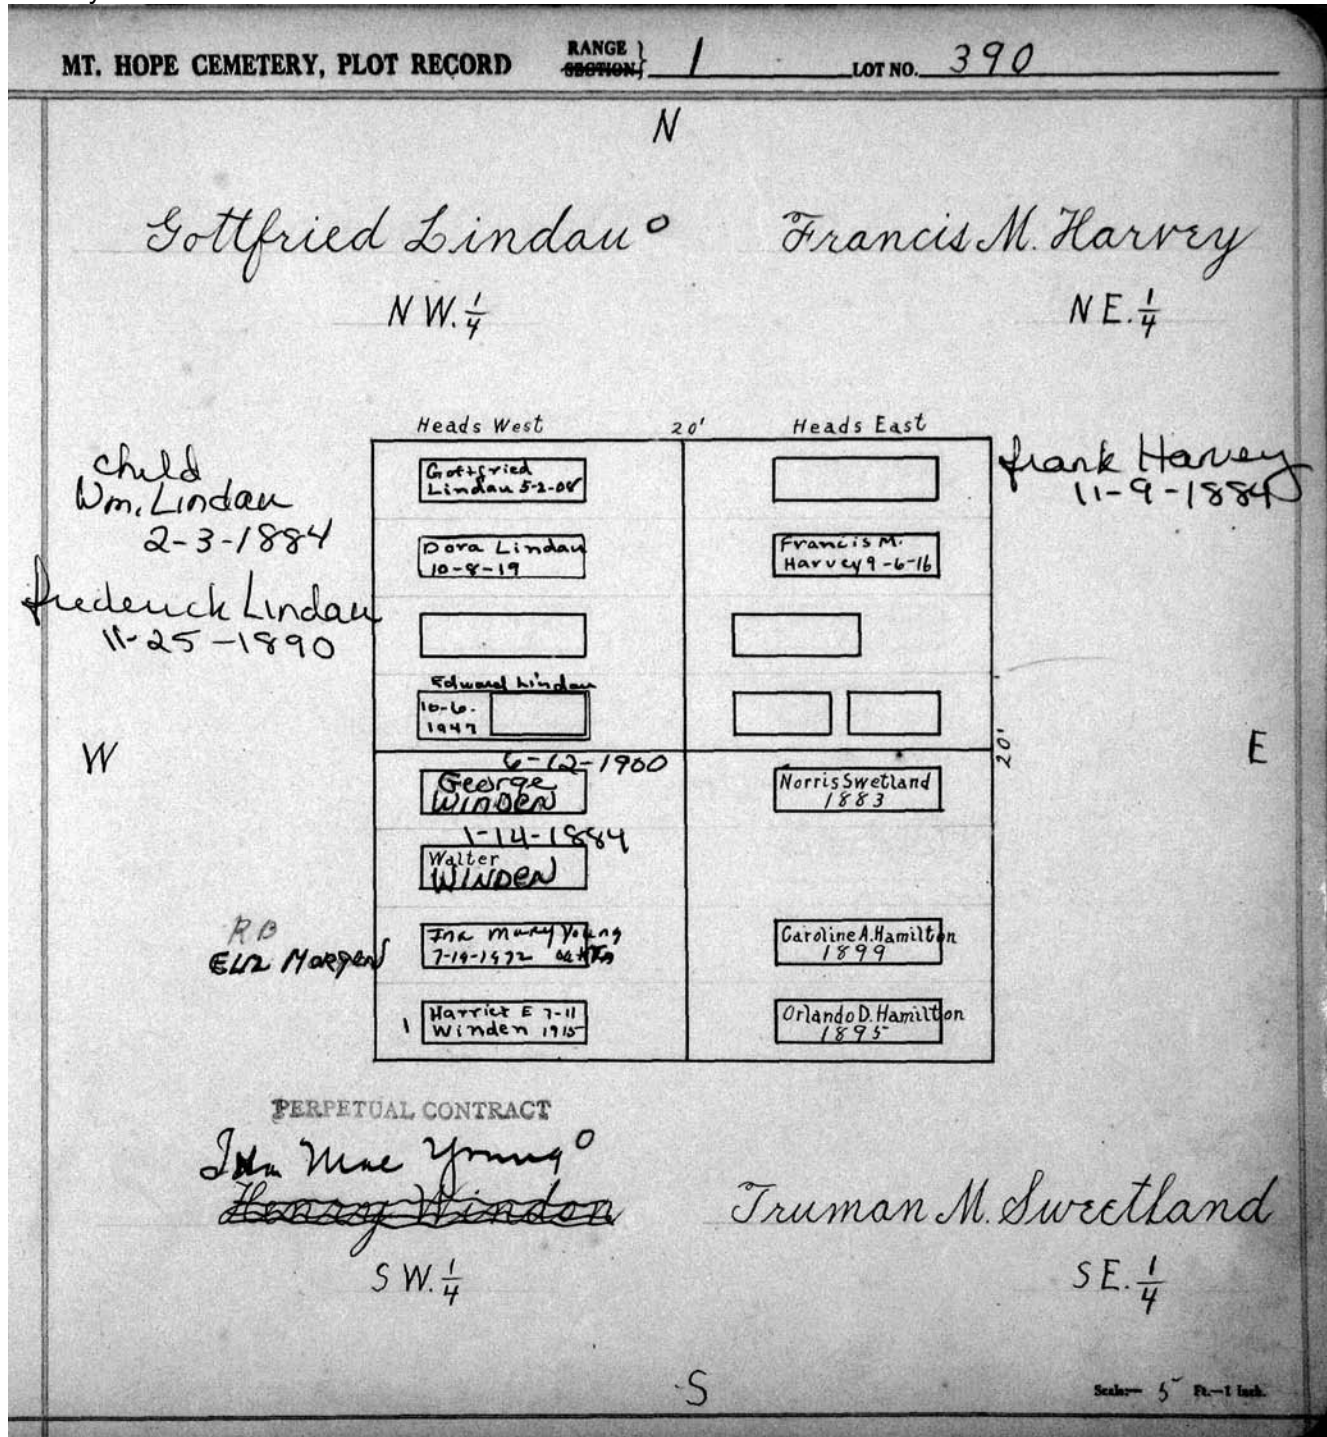 MT. HOPE CEMETERY, PLOT RECORD RANGE SECTION } 1 LOT NO. 390
N
Gottfried Lindau o
NW. 1/4
Francis M. Harvey
NE. 1/4
Heads West 20' Heads East
child
Wm. Lindau
2-3-1884
Frederick Lindau
11-25-1890
Gottfried
Lindau 5-2-08
Dora Lindau
10-8-19
Edward Lindau
10-6-
1947
Frank Harvey
11-9-1884
Francis M.
Harvey 9-6-16
20'
W
E
6-12-1900
George
WINDEN
1-14-1884
Walter
WINDEN
RB
Ina Mary Young
7-19-1972
Harriet E 7-11
Winden 1915
1
Norris Swetland
1883
Caroline A. Hamilton
1899
Orlando D. Hamilton
1895
PERPETUAL CONTRACT
Mae Young o
Henry Winden
SW. 1/4
Truman M. Sweetland
SE. 1/4
S
Scale:— 5 Ft.—1 inch.